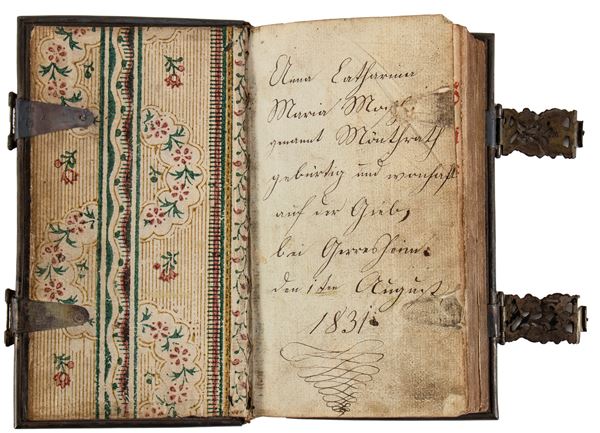 Anna Catharina
Maria
genannt Mönthrath
gebürtig und wonhaft
auf der Gieb
bei Gerresheim
den 1ten August
1831